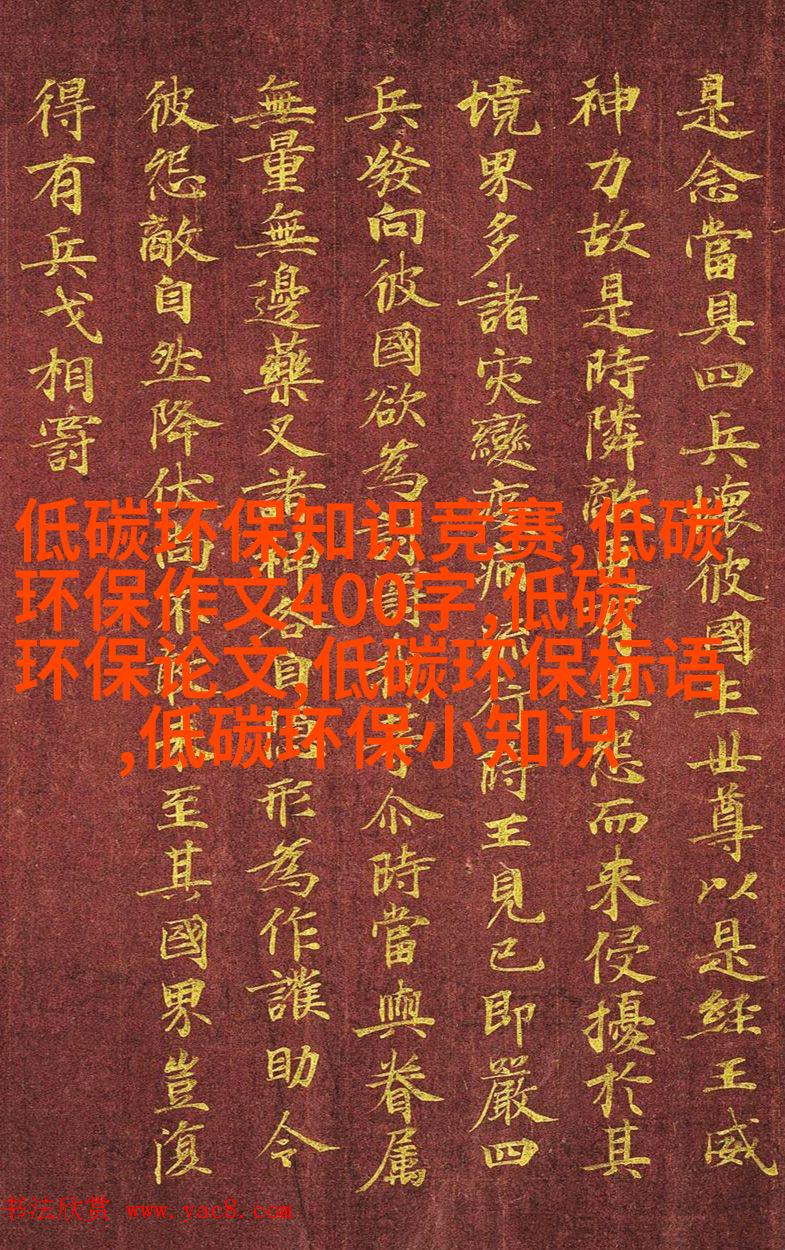 是念當具四兵壞彼國土世尊以是経王威
神力故是時隣敵更有異怨而来侵擾於其
境界多諸灾變疫病流行時王見已即嚴四
兵發向彼國欲為討罰我等尒時當與眷属
無量無邊藥叉諸神各自隱形為作護助令
彼怨敵自然降伏尚不敢来至其國界豈復
得有兵戈相罸
低碳环保知识竞赛,低碳
环保作文400字,低碳
环保论文,低碳环保标语
,低碳环保小知识
书法欣赏 www.yac8.com